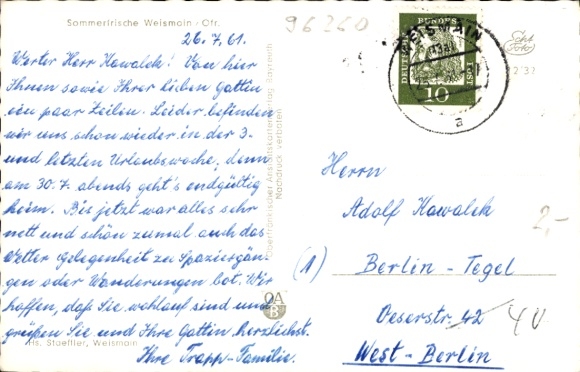 Sommerfrische Weismain / Ofr.
96260
26.7.61.
Werter Herr Kowalek! Von hier
Ihnen sowie Ihrer lieben Gattin
ein paar Zeilen. Leider befinden
wir uns schon wieder in der 3-
und letzten Urlaubswoche, denn
am 30.7. abends geht's endgültig
heim. Bis jetzt war alles sehr
nett und schön zumal auch das
Wetter Gelegenheit zu Spaziergän-
gen oder Wanderungen bot. Wir
hoffen, daß Sie wohlauf sind und
grüßen Sie und Ihre Gattin herzlichst.
Ihre Trapp-Familie.
Hs. Stoeffler, Weismain
Oberfränkischer Ansichtskartenverlag Bayreuth
Nachdruck verboten
OA
B
WEISMAIN
a
DEUTSCHE
BUNDESPOST
10
Echt
Foto
Herrn
Adolf Kowalek
(1) Berlin-Tegel
Oeserstr. 42
West-Berlin
2,-